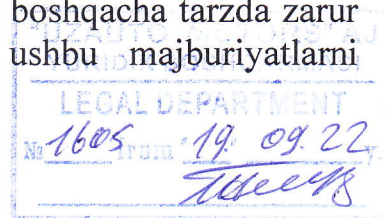 boshqacha tarzda zarur
ushbu majburiyatlarni
LEGAL DEPARTMENT
№ 1605 from "19" 09. 22 y.